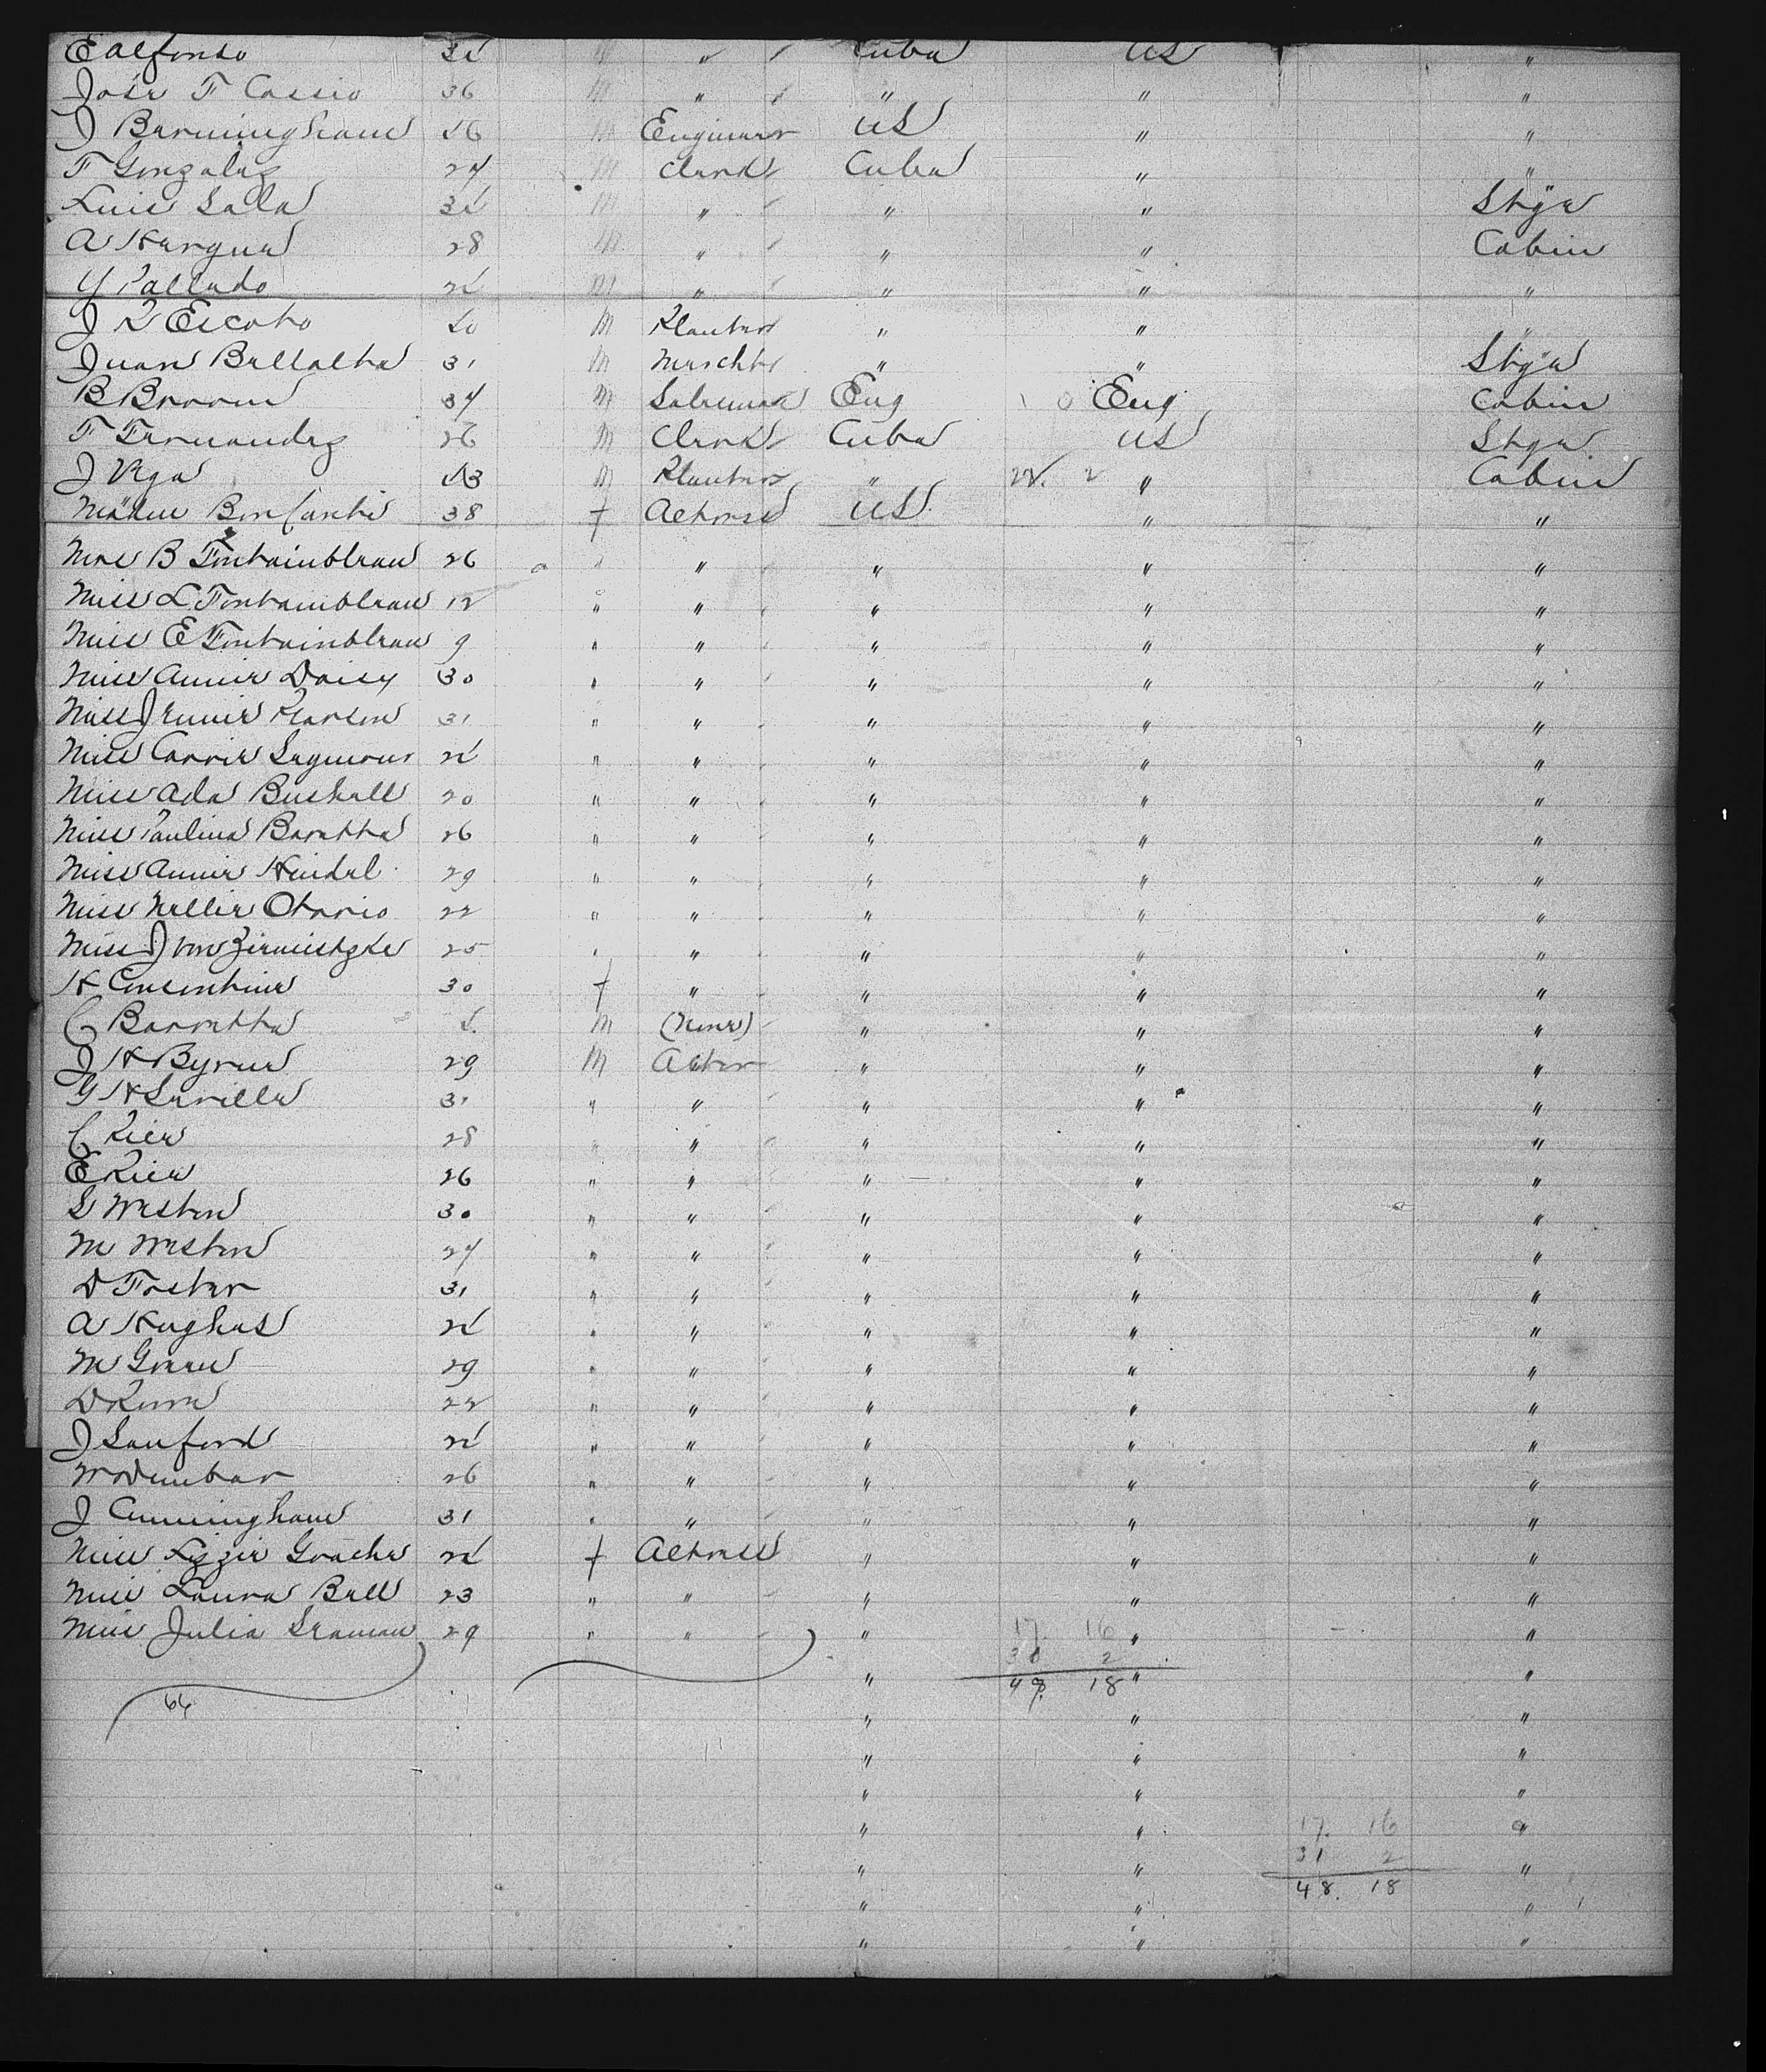 E Alfonso 35 " " Cuba US "
José F Cossio 36 M " " " "
J Bermingham 56 M Engineer US " "
F Gonzalez 24 M Clerk Cuba " "
Luis Sala 35 M " " " Stge
A Hergue 28 M " " " Cabin
Y Pallado 25 M " " " "
J R Escoto 50 M Planter " " "
Juan Bellalta 31 M Merscht " " Stge
B Broom 34 M Salesman Eng Eng Cabin
F Fernandez 26 M Clerk Cuba US Stge
J Vega 53 M Planter " 22. 2 " Cabin
Madm Bonfanti 38 f Actress US " "
Mrs B Fontainbleau 26 " " " " "
Miss L Fontainbleau 12 " " " " "
Miss E Fontainbleau 9 " " " " "
Miss Annie Daisy 30 " " " " "
Miss Jennie Pearson 31 " " " " "
Miss Carrie Seymour 25 " " " " "
Miss Ada Bushell 20 " " " " "
Miss Paulina Baretta 26 " " " " "
Miss Annie Heindel 29 " " " " "
Miss Nellie Otario 22 " " " " "
Miss J von 25 " " " " "
H Consentine 30 f " " " "
C Barretta 5. M (None) " " "
J H Byrne 29 M Actor " " "
G H Saville 31 " " " " "
C Rice 28 " " " " "
E Rice 26 " " " " "
S Weston 30 " " " " "
M Weston 24 " " " " "
D Foster 31 " " " " "
A Hughes 25 " " " " "
M Green 29 " " " " "
D 22 " " " " "
J Sanford 25 " " " " "
W Dunbar 26 " " " " "
J Cunningham 31 " " " " "
Miss Lizzie Goache 25 f Actress " " "
Miss Laura Bell 23 " " " " "
Miss Julia Seaman 29 " " " 17. 16 " "
31 2
" 49. 18 " "
64
" " "
" " "
" " "
" " 17. 16 "
" " 31 2 "
48. 18
" " "
" " "